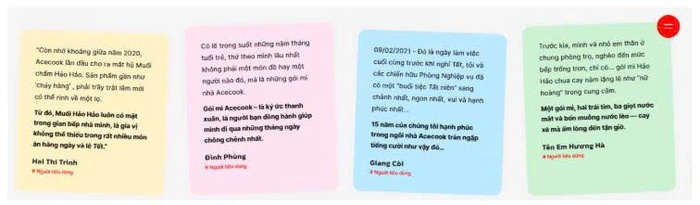 "Còn nhớ khoảng giữa năm 2020,
Acecook lần đầu cho ra mắt hũ Muối
chấm Hảo Hảo. Sản phẩm gần như
'cháy hàng', phải trầy trật lắm mới
có thể rinh về một lọ.
Từ đó, Muối Hảo Hảo luôn có mặt
trong gian bếp nhà mình, là gia vị
không thể thiếu trong rất nhiều món
ăn hàng ngày và lễ Tết."
Hai Thi Trinh
# Người tiêu dùng
Có lẽ trong suốt những năm tháng
tuổi trẻ, thứ theo mình lâu nhất
không phải một món đồ hay một
người nào đó, mà là những gói mì
nhà Acecook.
Gói mì Acecook – là ký ức thanh
xuân, là người bạn đồng hành giúp
mình đi qua những tháng ngày
chông chênh nhất.
Đình Phùng
# Người tiêu dùng
09/02/2021 - Đó là ngày làm việc
cuối cùng trước khi nghỉ Tết, tôi và
các chiến hữu Phòng Nghiệp vụ đã
có một "buổi tiệc Tất niên" sang
chảnh nhất, ngon nhất, vui và hạnh
phúc nhất...
15 năm của chúng tôi hạnh phúc
trong ngôi nhà Acecook tràn ngập
tiếng cười như vậy đó...
Giang Còi
# Người tiêu dùng
Trước kia, mình và nhỏ em thân ở
chung phòng trọ, nghèo đến mức
bếp trống trơn, chỉ có... gói mì Hảo
Hảo chua cay nằm lặng lẽ như "nữ
hoàng" trong cung cấm.
Một gói mì, hai trái tim, ba giọt nước
mắt và bốn muỗng nước lèo — cay
xè mà ấm lòng đến tận giờ.
Tên Em Hương Hà
# Người tiêu dùng